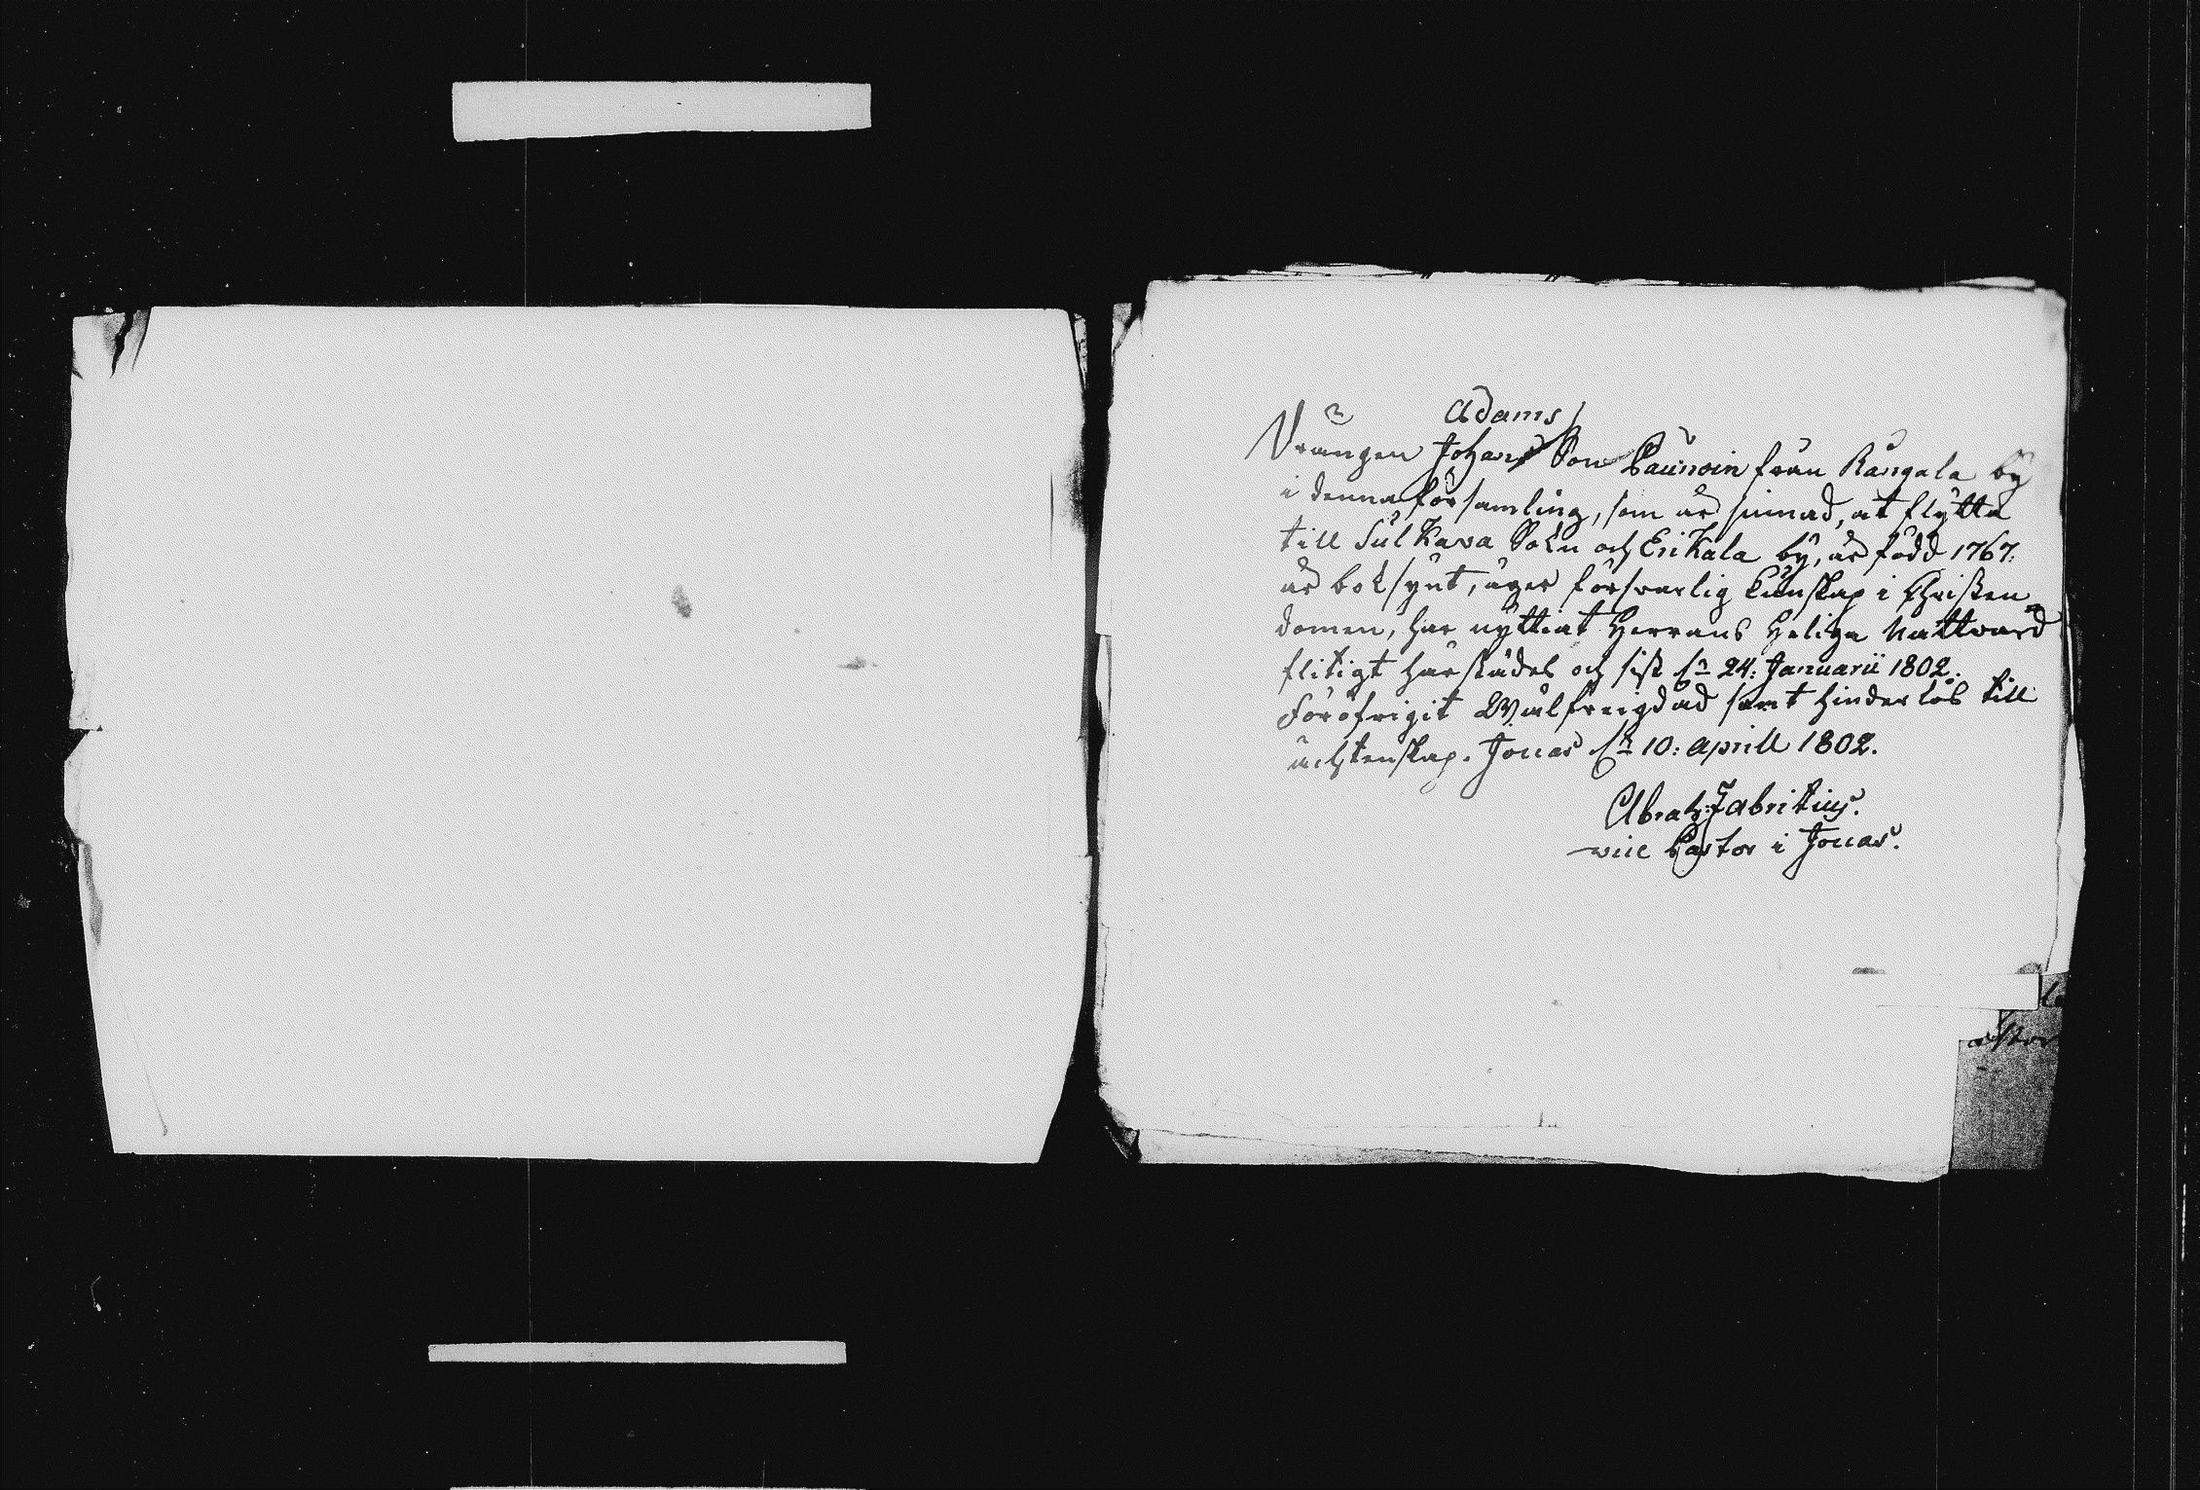 Adams
Drängen Johan Son Paunoin från Kangala bÿ
i denna församling, som är sinnad, at flÿtta
till Sulkava Sokn och Erikala bÿ, är född 1767.
är boksynt, äger försvarlig kunskap i Christen
domen, har nyttiat Herrans Heliga Nattvard
flitigt härstädes och sist dn 24: Januarii 1802.
Föröfrigit Wälfreigdad samt hinderlös till
ächtenskap. Jouas dn 10: Aprill 1802.
Abrah: Fabritius.
vice Pastor i Jouas.